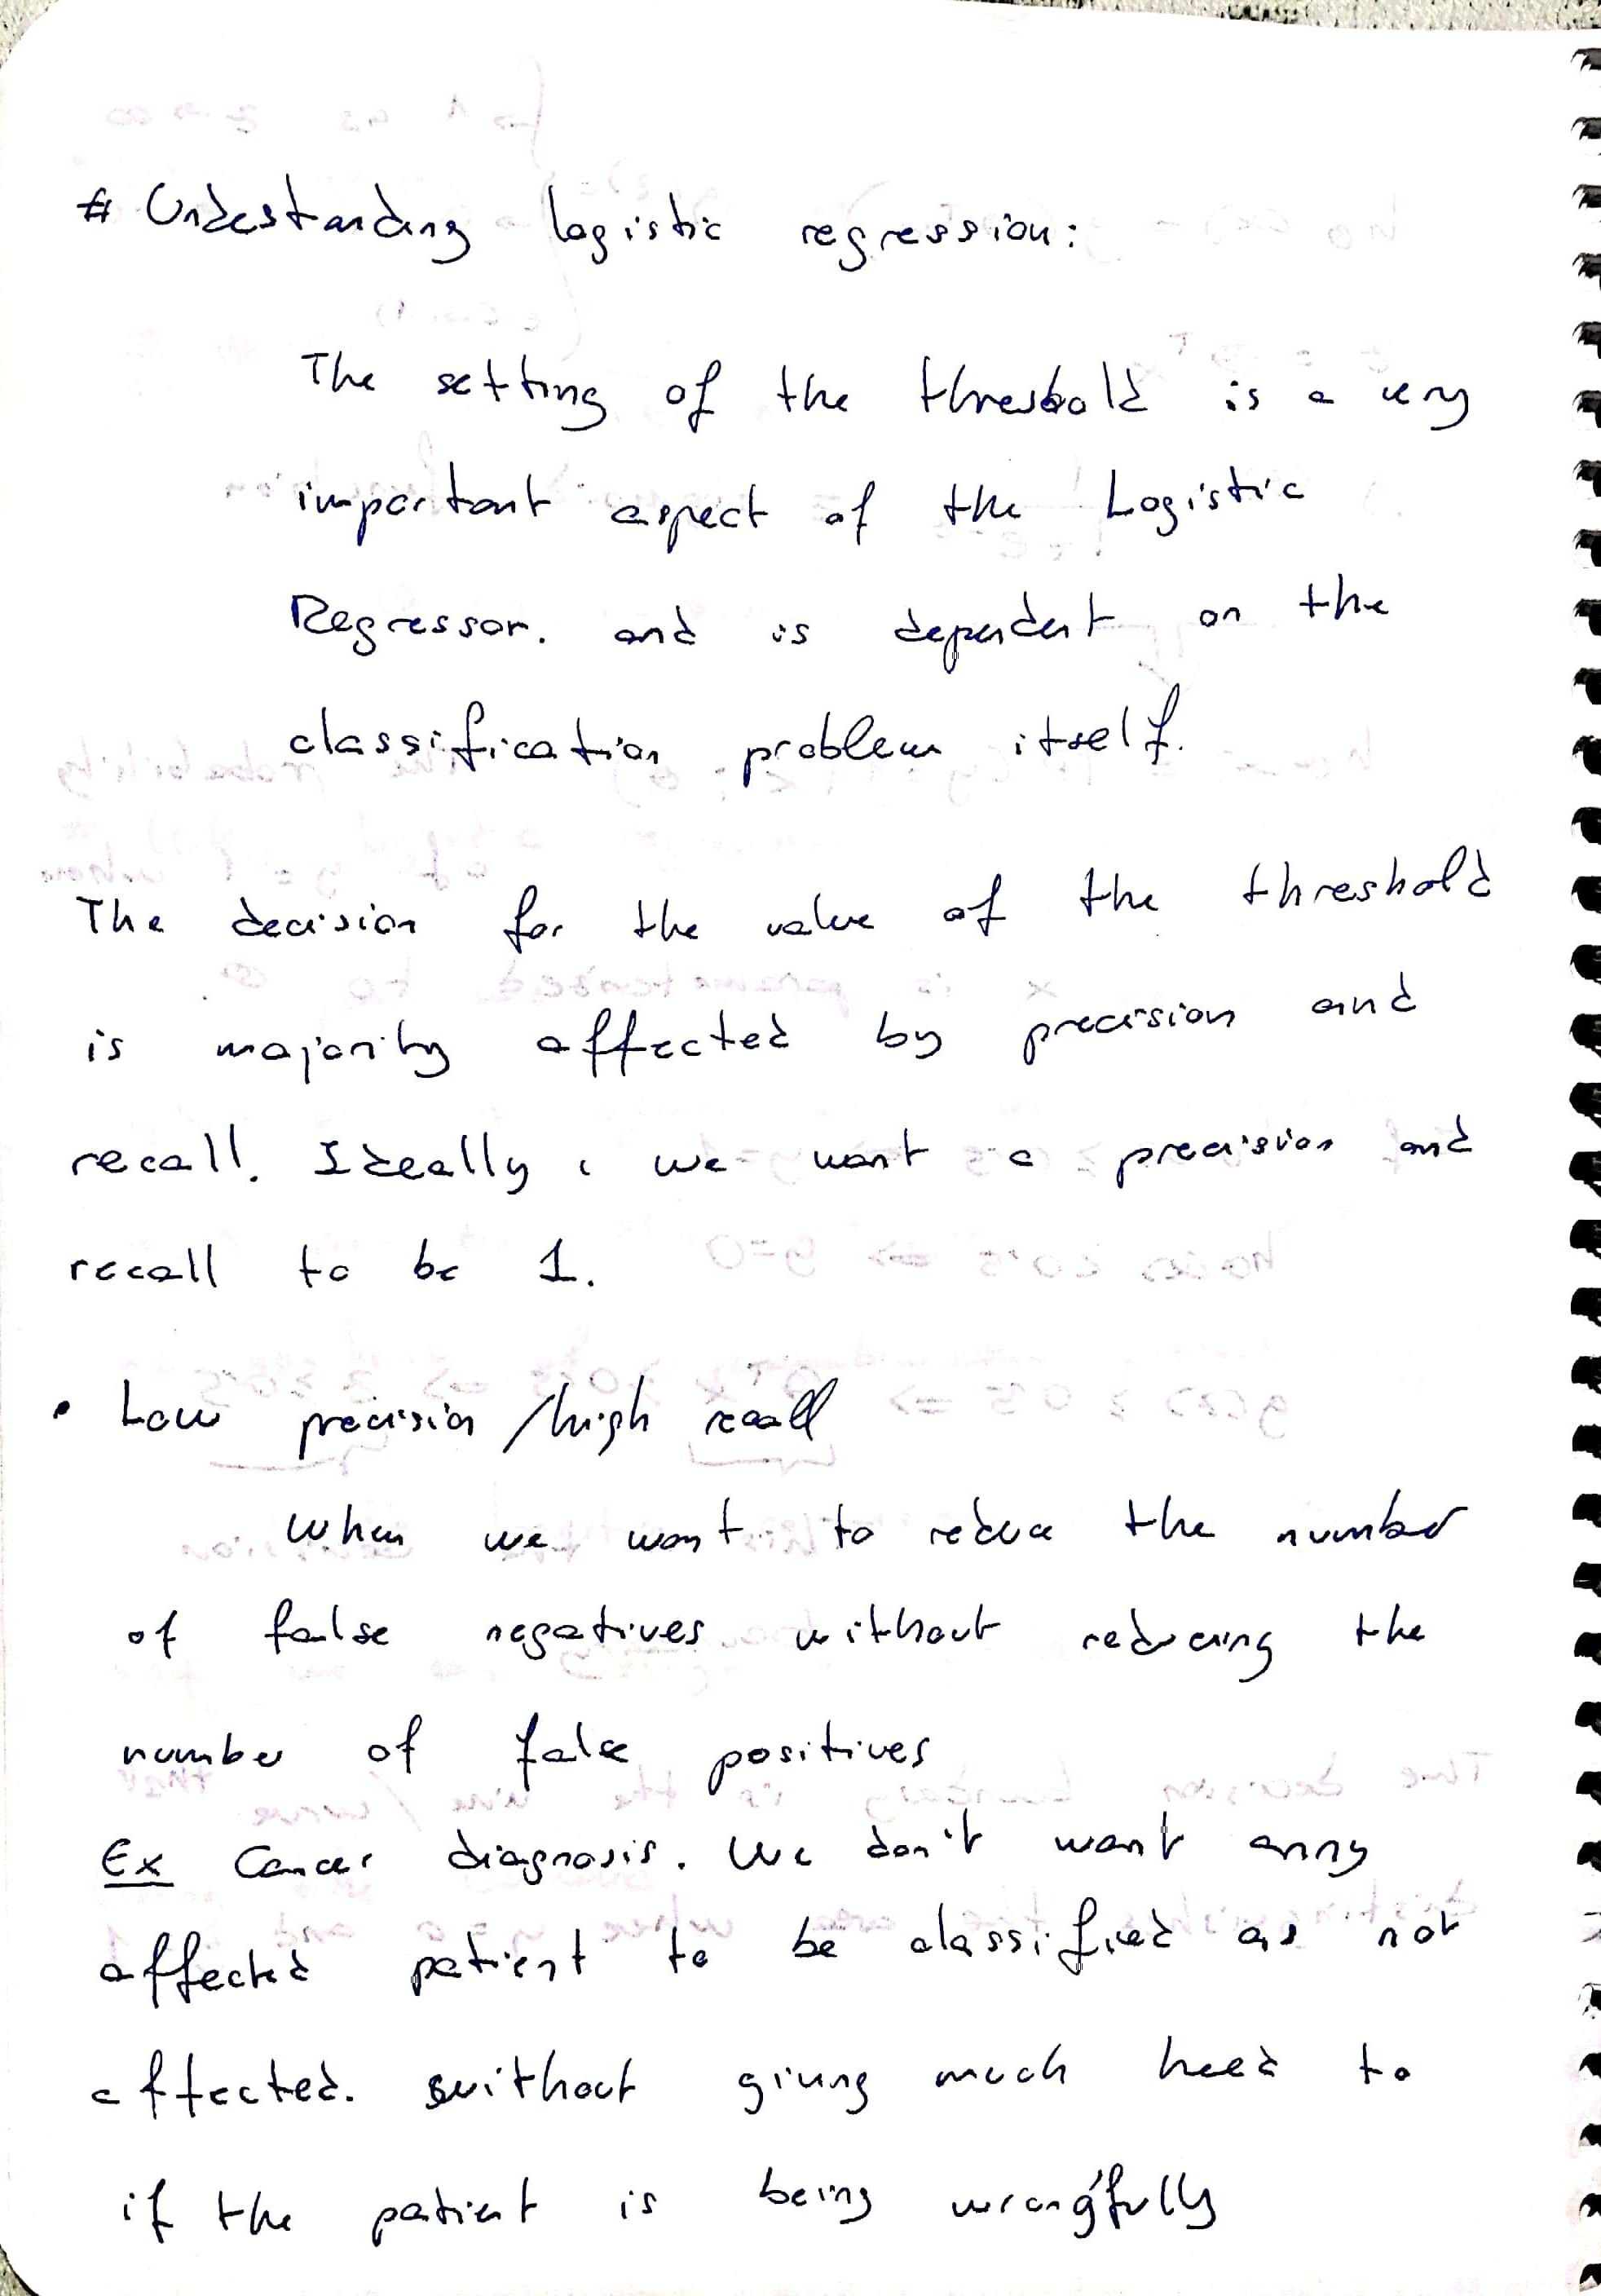 # Understanding logistic regression:
The setting of the threshold is a very
important aspect of the Logistic
Regressor. and is dependent on the
classification problem itself.
The decision for the value of the threshold
is majority affected by precision and
recall. Ideally, we want a precision and
recall to be 1.
• Low precision/high recall
When we want to reduce the number
of false negatives without reducing the
number of false positives
Ex Cancer diagnosis. We don't want anny
affected patient to be classified as not
affected. without giving much heed to
if the patient is being wrongfully